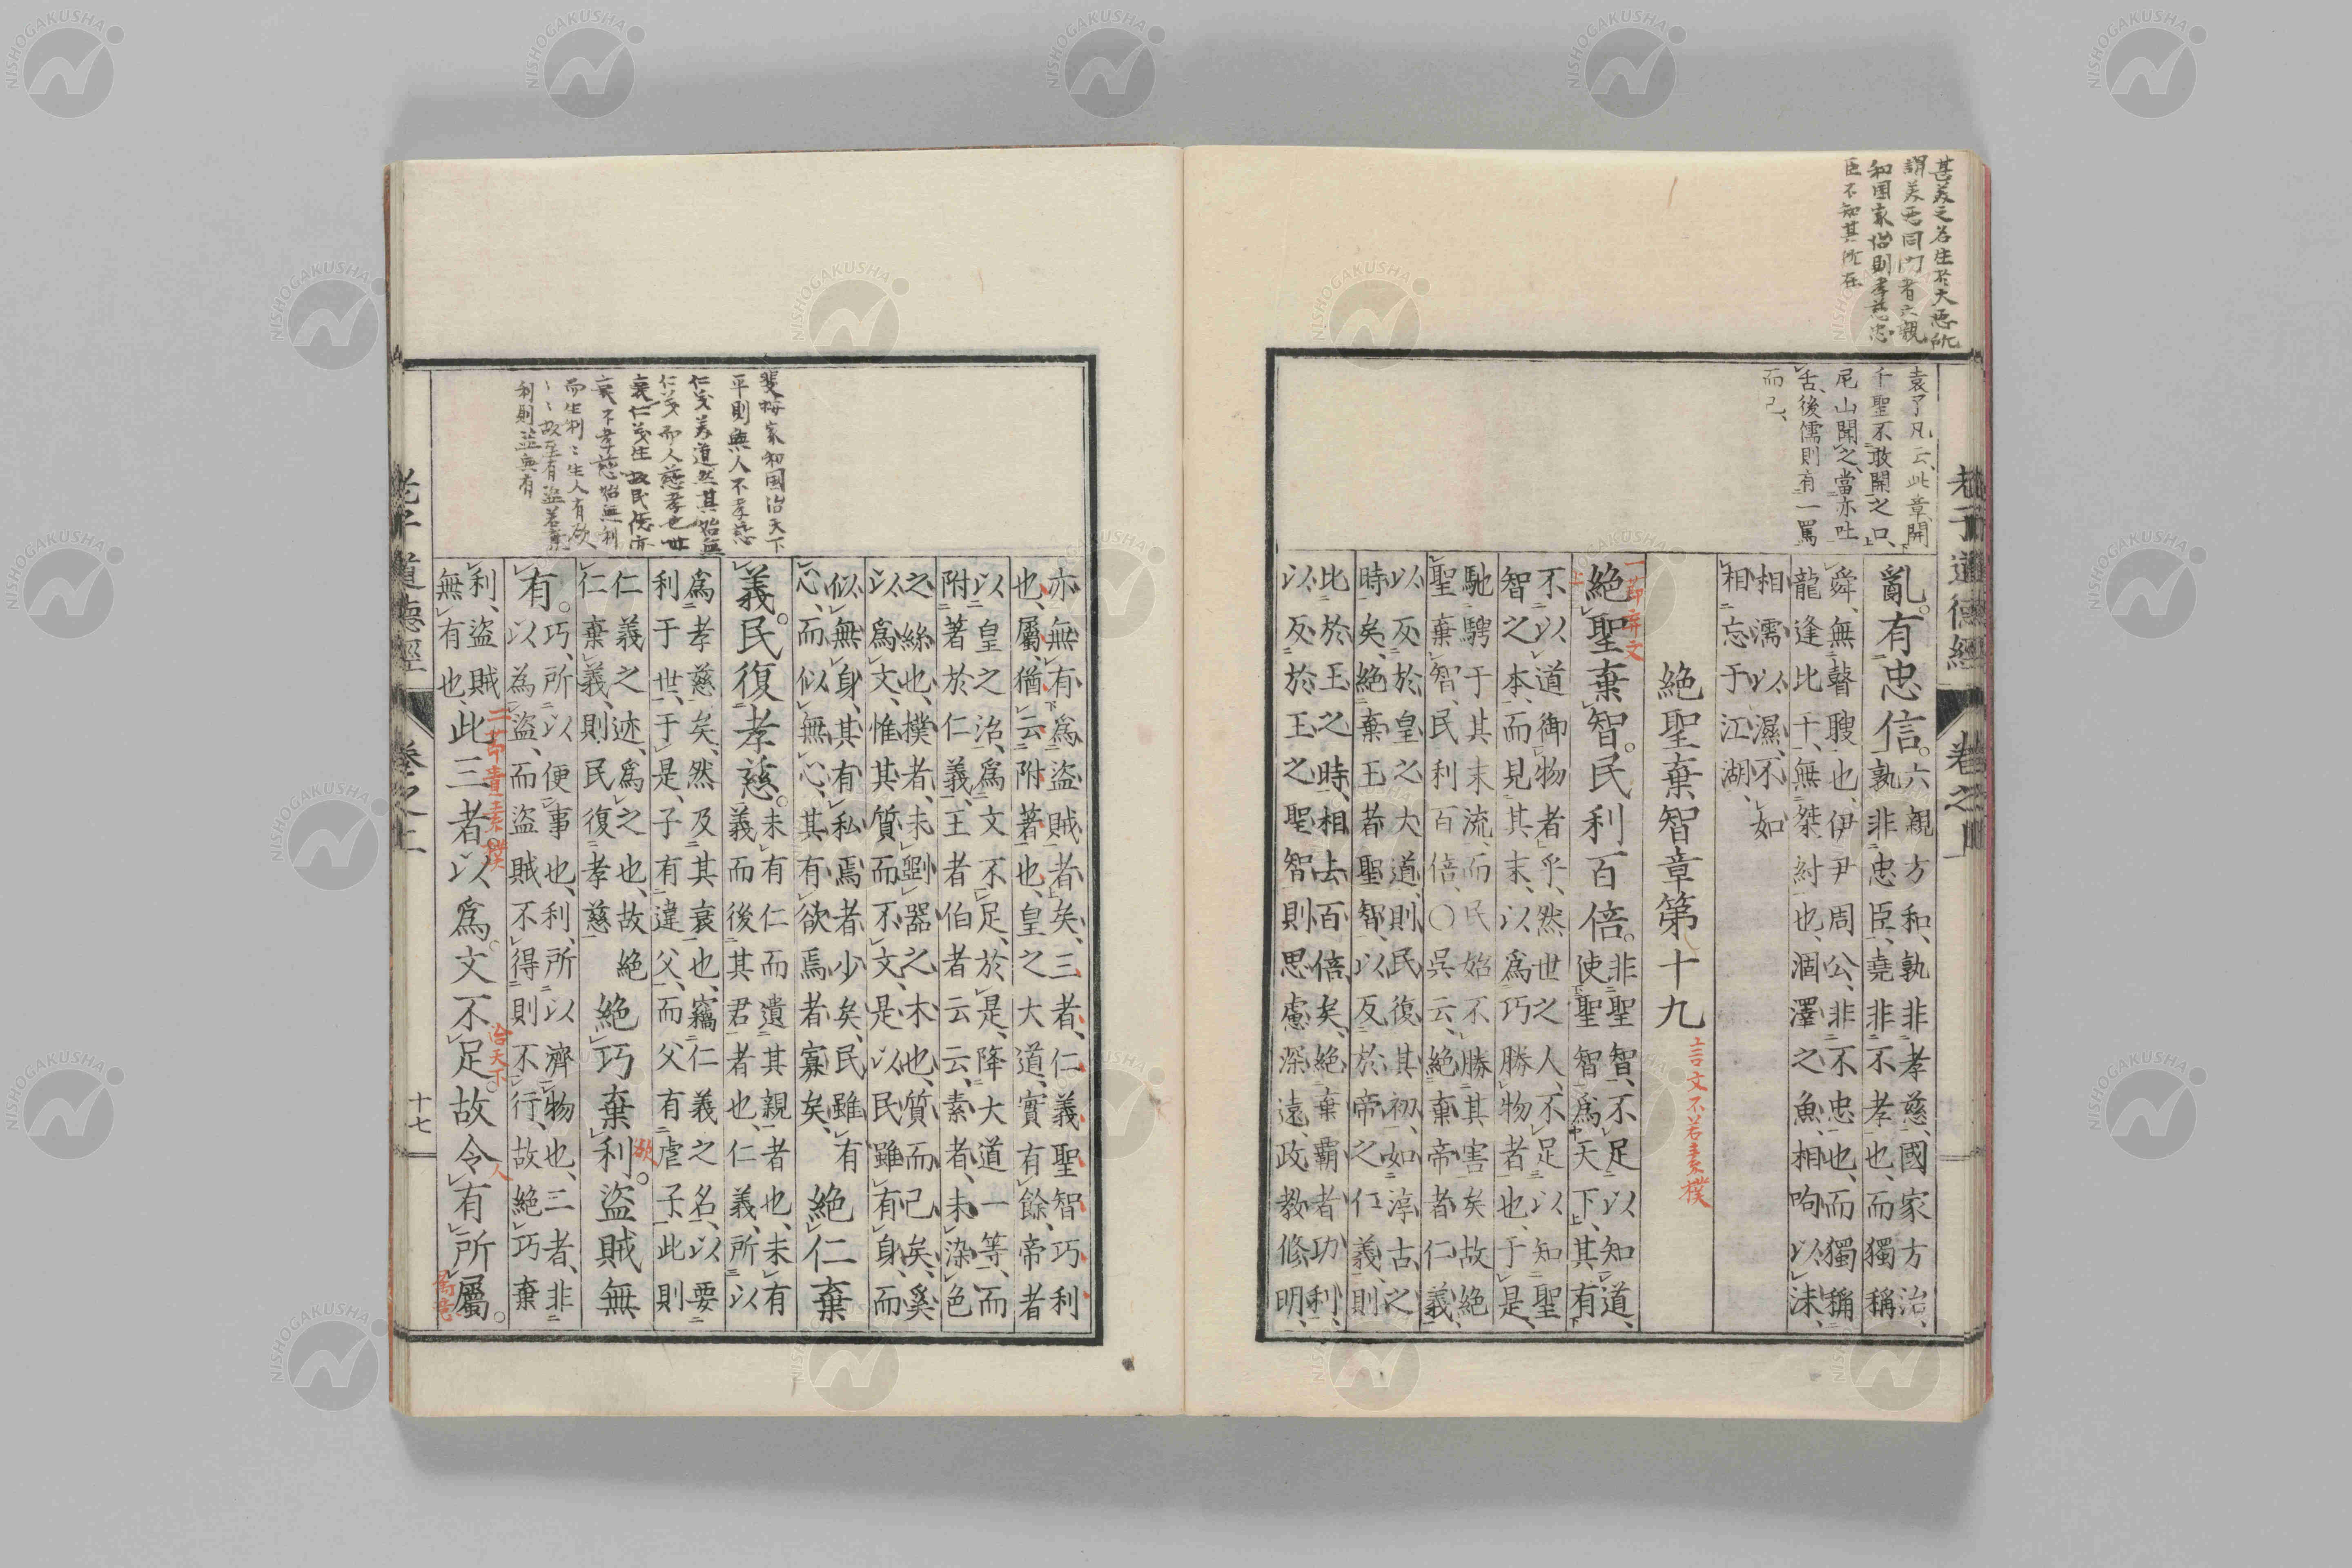 甚美之名生於大惡所
謂美惡同門者六親
和国家治則孝慈忠
臣不知其所在
袁了凡云此章開
千聖不敢開之口
尼山聞之當亦吐
舌後儒則有一罵
而已
老子道德經
卷之上
亂。有忠信。
六親方和、孰非孝慈、國家方治、
孰非忠臣、堯非不孝也、而獨稱
舜、無瞽瞍也、伊尹周公、非不忠也、而獨稱
龍逢比干、無桀紂也、涸澤之魚、相呴以沫、
相濡以濕、不如
相忘于江湖、
絕聖棄智章第十九
言文不若素樸
一節弃文
絕聖棄智。民利百倍。
非聖智、不足以知道、
使聖智爲天下、其有
不以道御物者乎、然世之人、不足以知聖
智之本、而見其末、以爲巧勝物者也、于是、
馳騁于其末流、而民始不勝其害矣、故絕
聖棄智、民利百倍、〇吳云、絕棄帝者仁義、
以反於皇之大道、則民復其初、如淳古之
時矣、絕棄王者聖智、以反於帝之仁義、則
比於王之時、相去百倍矣、絕棄霸者功利、
以反於王之聖智、則思慮深遠、政教修明、
亦無有爲盜賊者矣、三者、仁義聖智巧利
也、屬、猶云附著也、皇之大道、實有餘、帝者
以皇之治、爲文不足、於是、降大道一等、而
附著於仁義、王者伯者云云、素者、未染色
之絲也、樸者、未劉器之木也、質而已矣、奚
以爲文、惟其質而不文、是以民雖有身、而
似無身、其有私焉者少矣、民雖有
心、而似無心、其有欲焉者寡矣、
絕仁棄
義。民復孝慈。
未有仁而遺其親者也、未有
義而後其君者也、仁義、所以
爲孝慈矣、然及其衰也、竊仁義之名、以要
利于世、于是、子有違父、而父有虐子、此則
仁義之迹、爲之也、故絕
仁棄義、則民復孝慈
絕巧棄利。盜賊無
有。
巧、所以便事也、利、所以濟物也、三者、非
以為盜、而盜賊不得則不行、故絕巧棄
利、盜賊
無有也、
此三者以爲文不足。故令有所屬。
二節貴素樸
治天下
人
斐按家和国治天下
平則無人不孝慈
仁義美道然其始無
仁義而人慈孝也世
衰仁義生故民德亦
衰不孝慈始無利
而生利ミ生人有欲
ミミ故至有盜若棄
利則盜無有
老子道德經
卷之上
十七